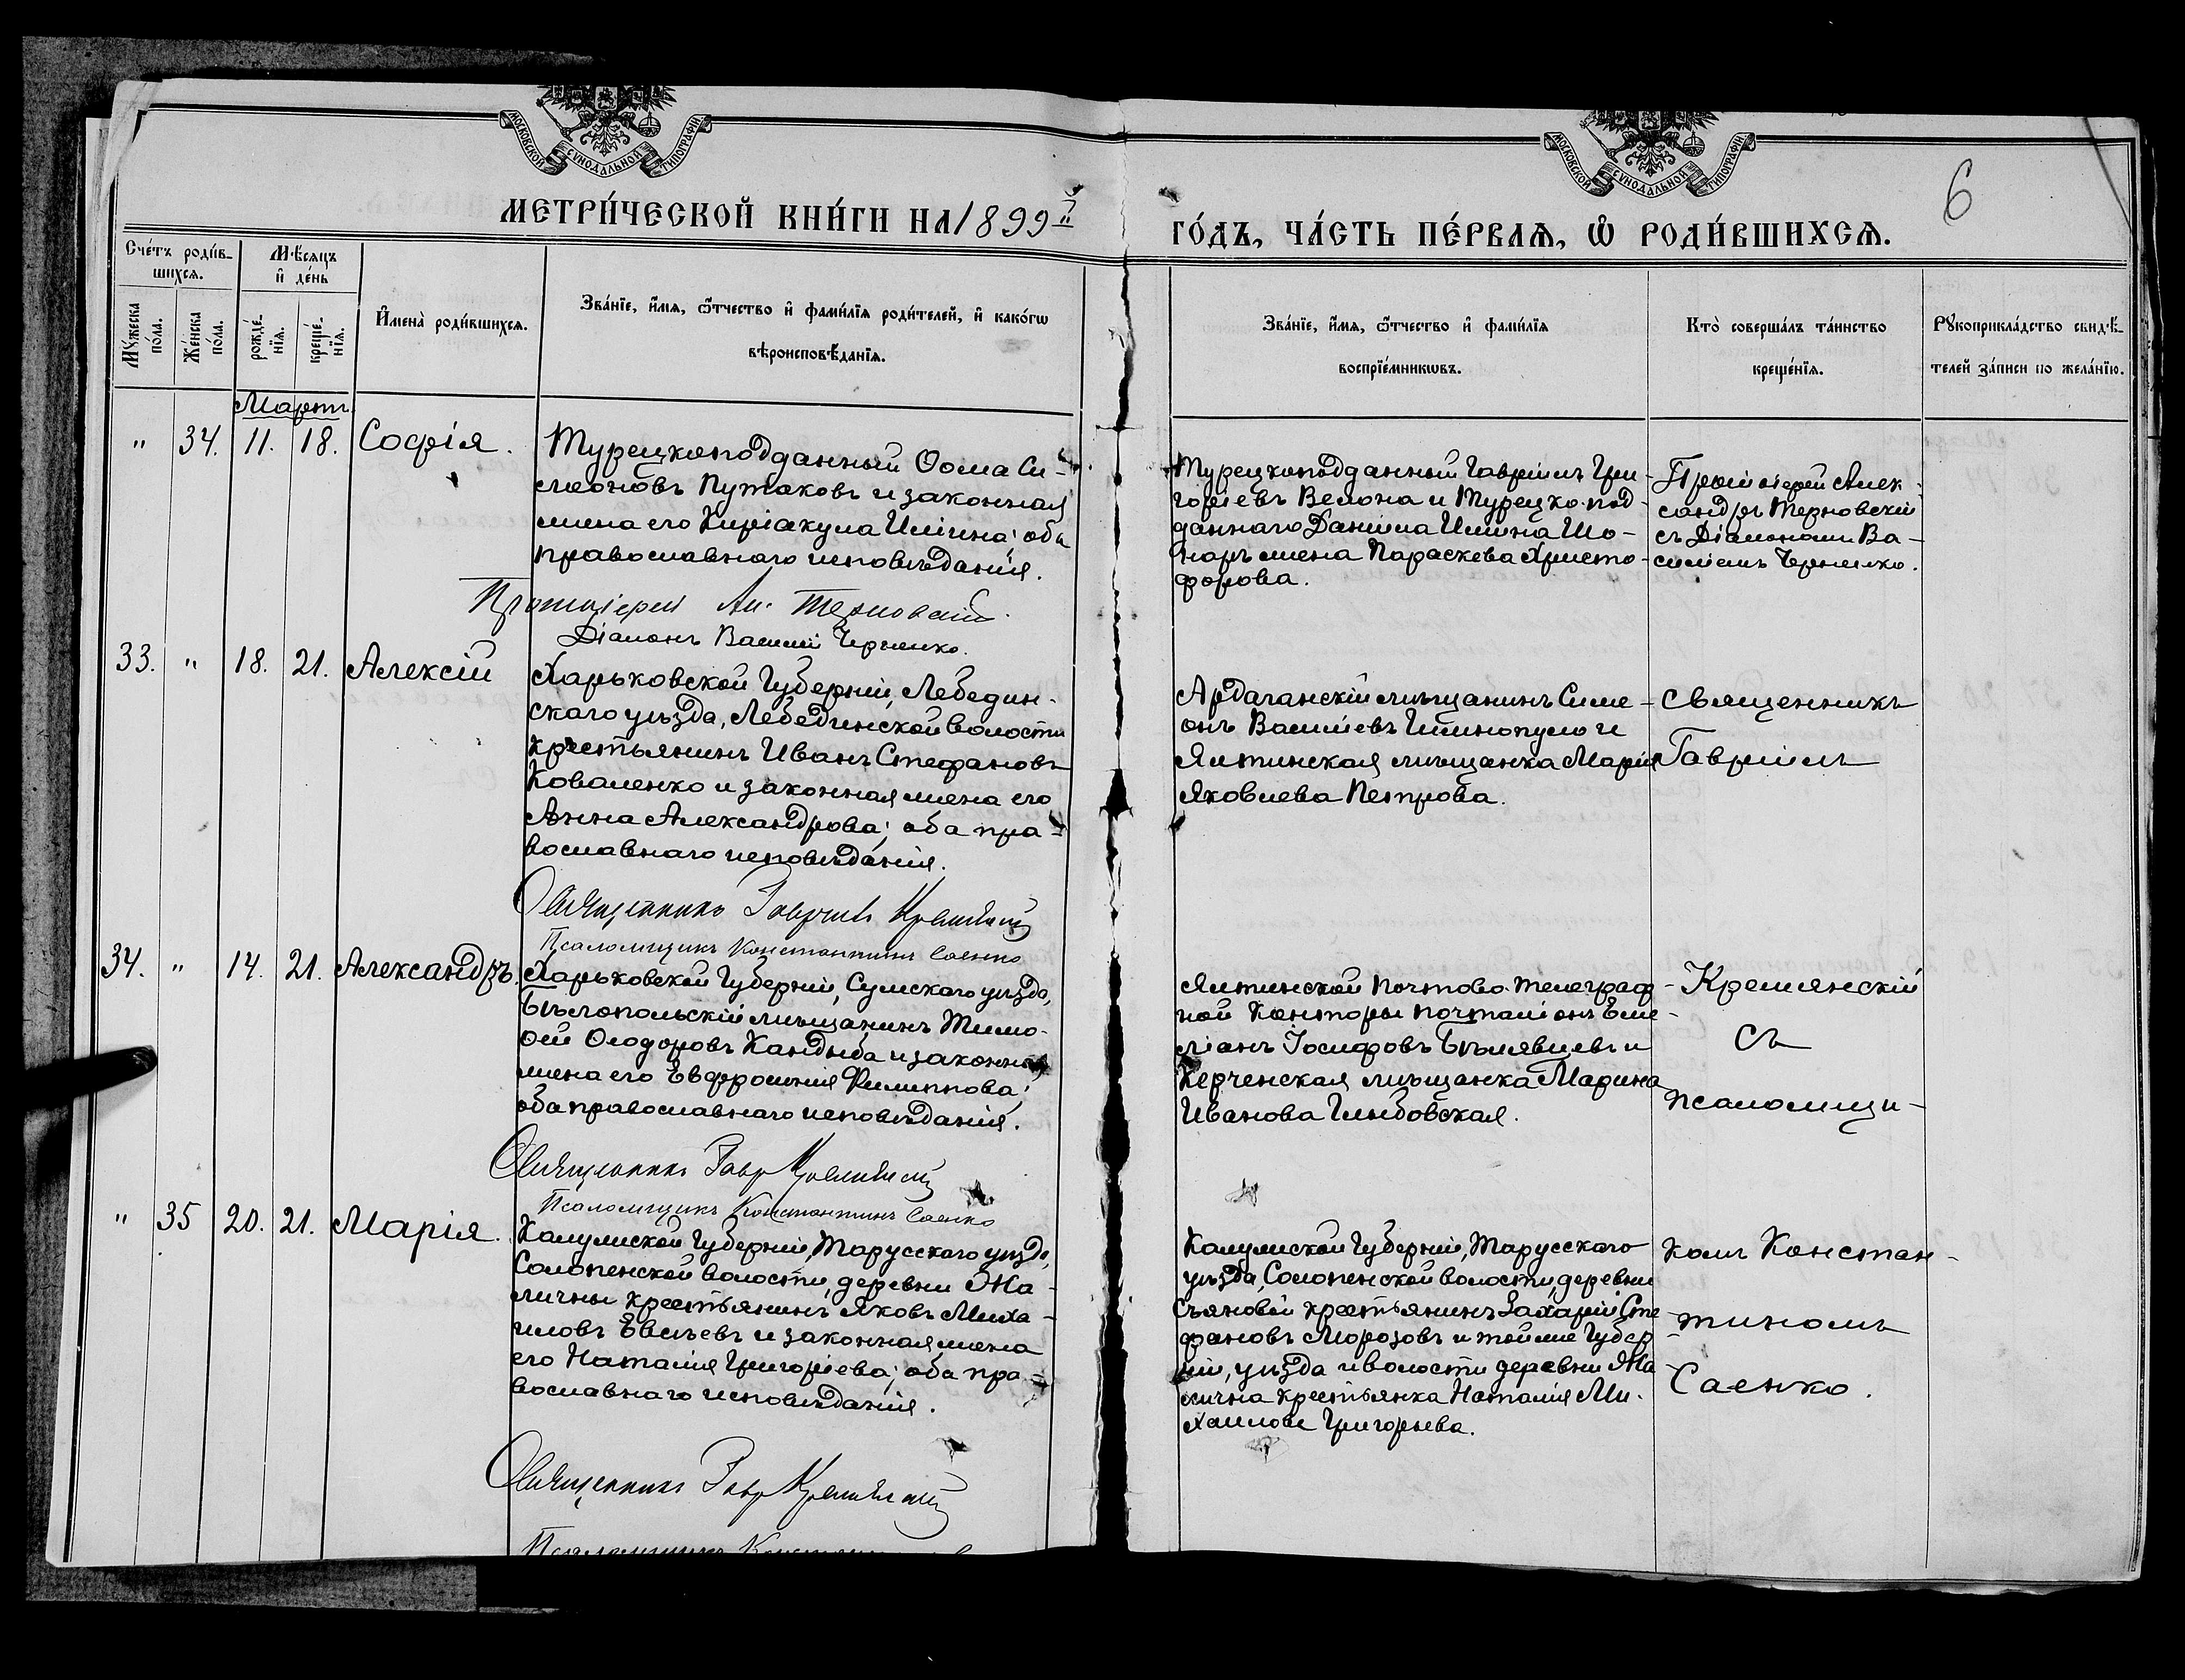 МОСКОВСКОЙ СѴНОДАЛЬНОЙ ТИПОГРАФІИ
МОСКОВСКОЙ СѴНОДАЛЬНОЙ ТИПОГРАФІИ
6
МЕТРИ́ЧЕСКОЙ КНИ́ГИ НА 1899й
ГО́ДЪ, ЧА́СТЬ ПЕ́РВАѦ, Ѡ РОДИ́ВШИХСѦ.
Сче́тъ роди́в-
шихсѧ.
Мѣсѧцъ
и де́нь
Мꙋ́жеска по́ла.
Же́нска по́ла.
рожде́-нїѧ.
креще́-нїѧ.
И҆мена̀ роди́вшихсѧ.
Зва́нїе, и҆́мѧ, ѻ҆́тчество и҆ фами́лїѧ роди́телей, и҆ како́гѡ
вѣроисповѣ́данїѧ.
Зва́нїе, и҆́мѧ, ѻ҆́тчество и҆ фами́лїѧ
воспрїе́мникѡвъ.
Кто̀ соверша́лъ та́инство
креще́нїѧ.
Рꙋкоприкла́дство свидѣ́-
телей за́писи по жела́нїю.
Мартъ
" 34. 11. 18. Софія.
Турецкоподданный Ѳома Си-
меоновъ Путаковъ и законная
жена его Киріакула Иліина; оба
православнаго исповѣданія.
Протоіерей Ал. Терновскій.
Діаконъ Василій Черненко.
Турецкоподданный Гавріилъ Гри-
горіевъ Велона и Турецко-под-
даннаго Даніила Иліина Шо-
наръ жена Параскева Христо-
форова.
Протоіерей Алек-
сандръ Терновскій
съ Діакономъ Ва-
силіемъ Черненко.
33. " 18. 21. Алексій
Харьковской Губерніи, Лебедин-
скаго уѣзда, Лебединской волости
крестьянинъ Иванъ Стефановъ
Коваленко и законная жена его
Анна Александрова; оба пра-
вославнаго исповѣданія.
Священникъ Гавріилъ Кремянскій
Псаломщикъ Константинъ Саенко
Ардаганскій мѣщанинъ Симе-
онъ Василіевъ Иллинопуло и
Ялтинская мѣщанка Марія
Яковлева Петрова.
Священникъ
Гавріилъ
34. " 14. 21. Александръ.
Харьковской Губерніи, Сумскаго уѣзда,
Бѣлопольскій мѣщанинъ Тимо-
ѳей Ѳеодоровъ Кандыба и законная
жена его Евфросинія Филиппова;
оба православнаго исповѣданія.
Священникъ Гавр Кремянскій
Псаломщикъ Константинъ Саенко
Ялтинской Почтово-телеграф-
ной Конторы почталіонъ Еме-
ліанъ Іосифовъ Бѣлявцевъ и
Керченская мѣщанка Марина
Иванова Глибовская.
Кремянскій
съ
псаломщи-
" 35 20. 21. Марія.
Калужской Губерніи, Тарусскаго уѣзда,
Солопенской волости, деревни Жа-
личны крестьянинъ Яковъ Миха-
иловъ Евсѣевъ и законная жена
его Наталія Григоріева; оба пра-
вославнаго исповѣданія.
Священникъ Гавр Кремянскій
Калужской Губерніи, Тарусскаго
уѣзда, Солопенской волости, деревни
крестьянинъ Захарій Сте-
фановъ Морозовъ и той же Губер-
ніи, уѣзда и волости деревни Жа-
лична крестьянка Наталія Ми-
хаилова Григорьева.
комъ Констан-
тиномъ
Саенко.